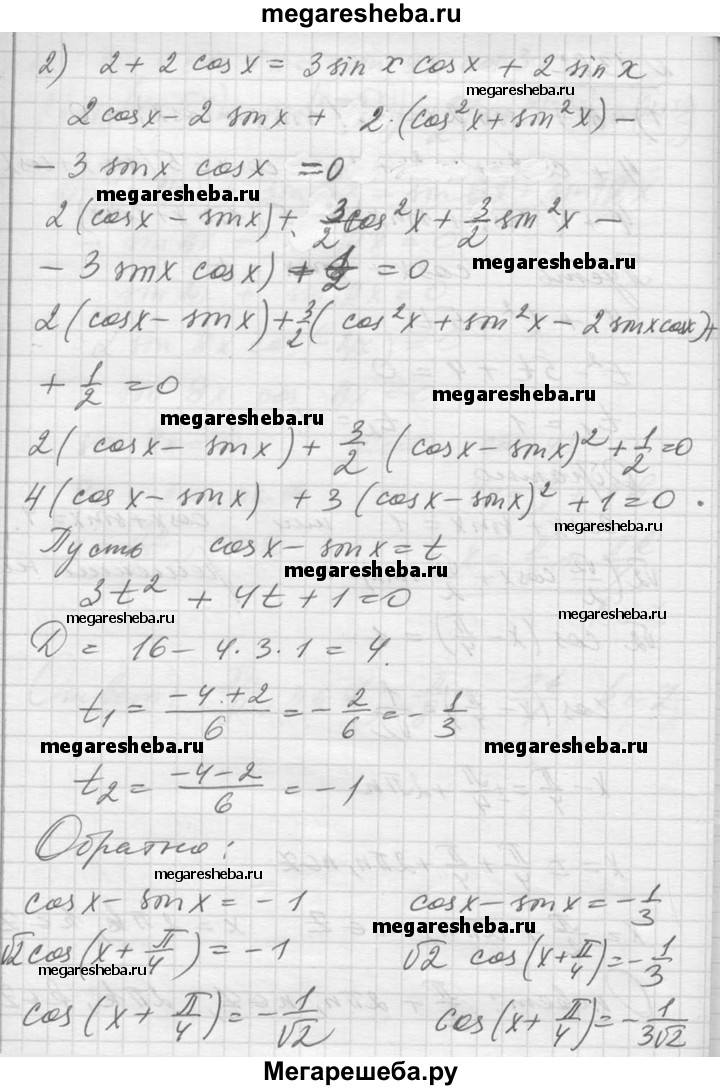 megaresheba.ru
2) 2 + 2 cos x = 3 sin x cos x + 2 sin x
megaresheba.ru
2 cos x - 2 sin x + 2·(cos²x + sin²x) -
- 3 sin x cos x = 0
megaresheba.ru
2(cos x - sin x) + 3/2 cos²x + 3/2 sin²x -
- 3 sin x cos x) + 1/2 = 0
megaresheba.ru
2(cos x - sin x) + 3/2 (cos²x + sin²x - 2 sin x cos x) +
+ 1/2 = 0
megaresheba.ru
megaresheba.ru
2(cos x - sin x) + 3/2 (cos x - sin x)² + 1/2 = 0
4(cos x - sin x) + 3(cos x - sin x)² + 1 = 0.
megaresheba.ru
Пусть cos x - sin x = t
megaresheba.ru
3t² + 4t + 1 = 0
megaresheba.ru
megaresheba.ru
D = 16 - 4·3·1 = 4.
t₁ = (-4+2)/6 = -2/6 = -1/3
megaresheba.ru
megaresheba.ru
t₂ = (-4-2)/6 = -1
Обратно:
cos x - sin x = -1 cos x - sin x = -1/3
megaresheba.ru
√2 cos(x + π/4) = -1 √2 cos(x + π/4) = -1/3
megaresheba.ru
cos(x + π/4) = -1/√2 cos(x + π/4) = -1/(3√2)
Мегарешеба.ру